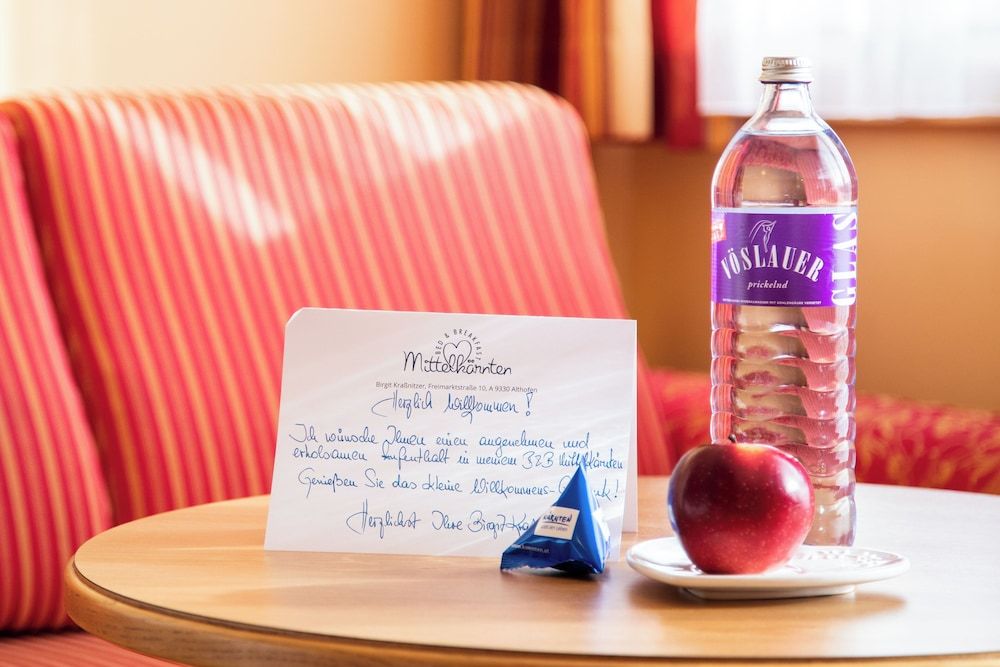 BED & BREAKFAST
Mittelkärnten
Birgit Kraßnitzer, Freimarktstraße 10, A 9330 Althofen
Herzlich Willkommen!
Ich wünsche Ihnen einen angenehmen und
erholsamen Aufenthalt in meinem B&B Mittelkärnten
Genießen Sie das kleine Willkommens-
Herzlichst Ihre Birgit
KÄRNTEN
www.kaernten.at
VÖSLAUER
prickelnd
GLAS